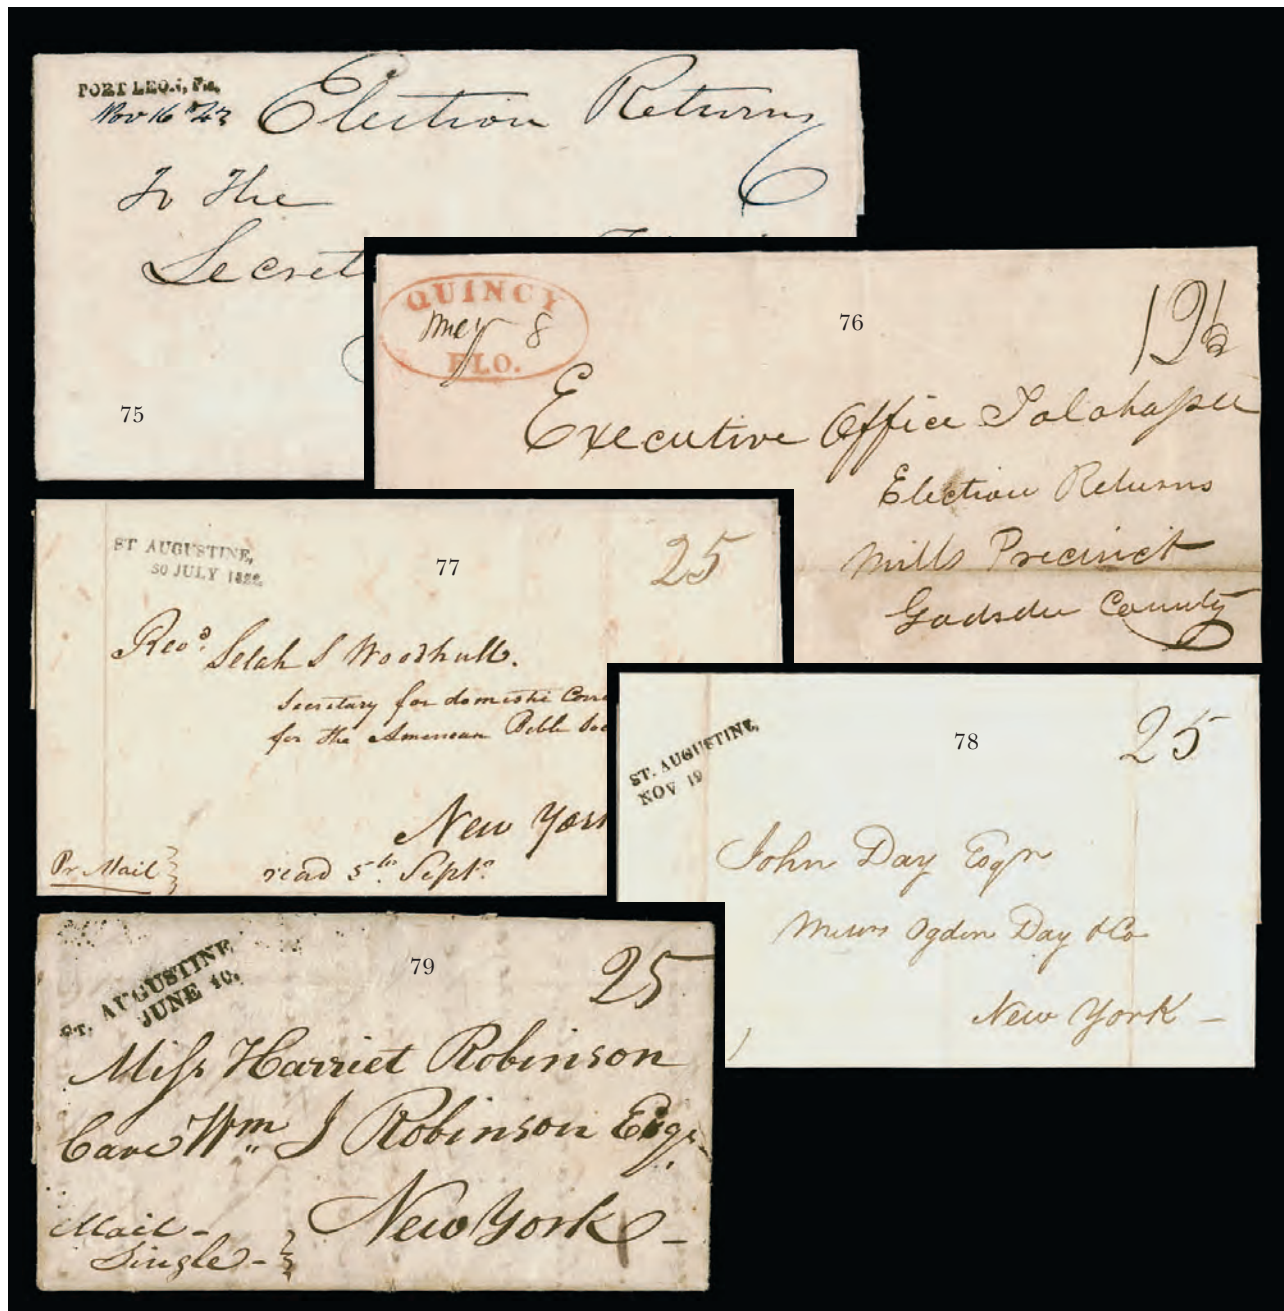 PORT LEON, Fla.
Nov 16 '43
Election Returns
6
To The
Secret
75
QUINCY
May 8
FLO.
76
12½
Executive Office Talahassee
Election Returns
Mills Precinct
Gadsden County
ST AUGUSTINE,
30 JULY 1822.
77
25
Revd. Selah S Woodhull.
Secretary for domestic Corre
for the American Bible Soc
New York
Pr Mail
read 5th. Sept.
ST. AUGUSTINE,
NOV 19
78
25
John Day Esqr
Messrs Ogden Day & Co
New York
ST. AUGUSTINE
JUNE 10.
79
25
Miss Harriet Robinson
Care Wm J Robinson Esqr.
New York
Mail
Single